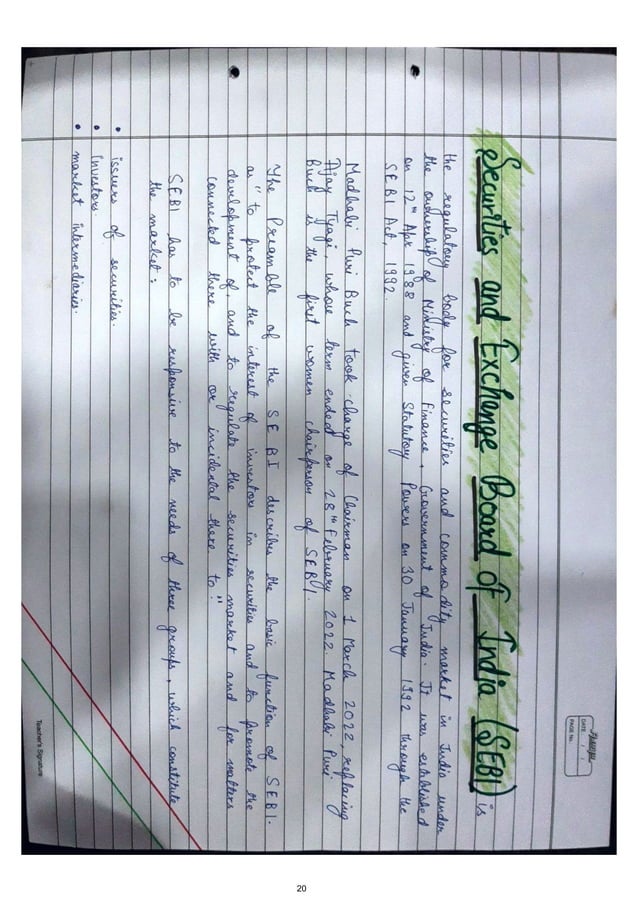 DATE: / /
PAGE No.
Securities and Exchange Board of India (SEBI) is
the regulatory body for securities and commodity market in India under
the ownership of Ministry of Finance, Government of India. It was established
on 12th Apr 1988 and given Statutory Powers on 30 January 1992 through the
SEBI Act, 1992
Madhabi Puri Buch took charge of Chairman on 1 March 2022, replacing
Ajay Tyagi, whose term ended on 28th February 2022. Madhabi Puri
Buch is the first women chairperson of SEBI.
The Preamble of the SEBI describes the basic function of SEBI.
as "to protect the interest of investors in securities and to promote the
development of, and to regulate the securities market and for matters
connected there with or incidental there to"
SEBI has to be responsive to the needs of three groups, which constitute
the market:
• issuers of securities.
• Investors
• market intermediaries.
Teacher's Signature
20